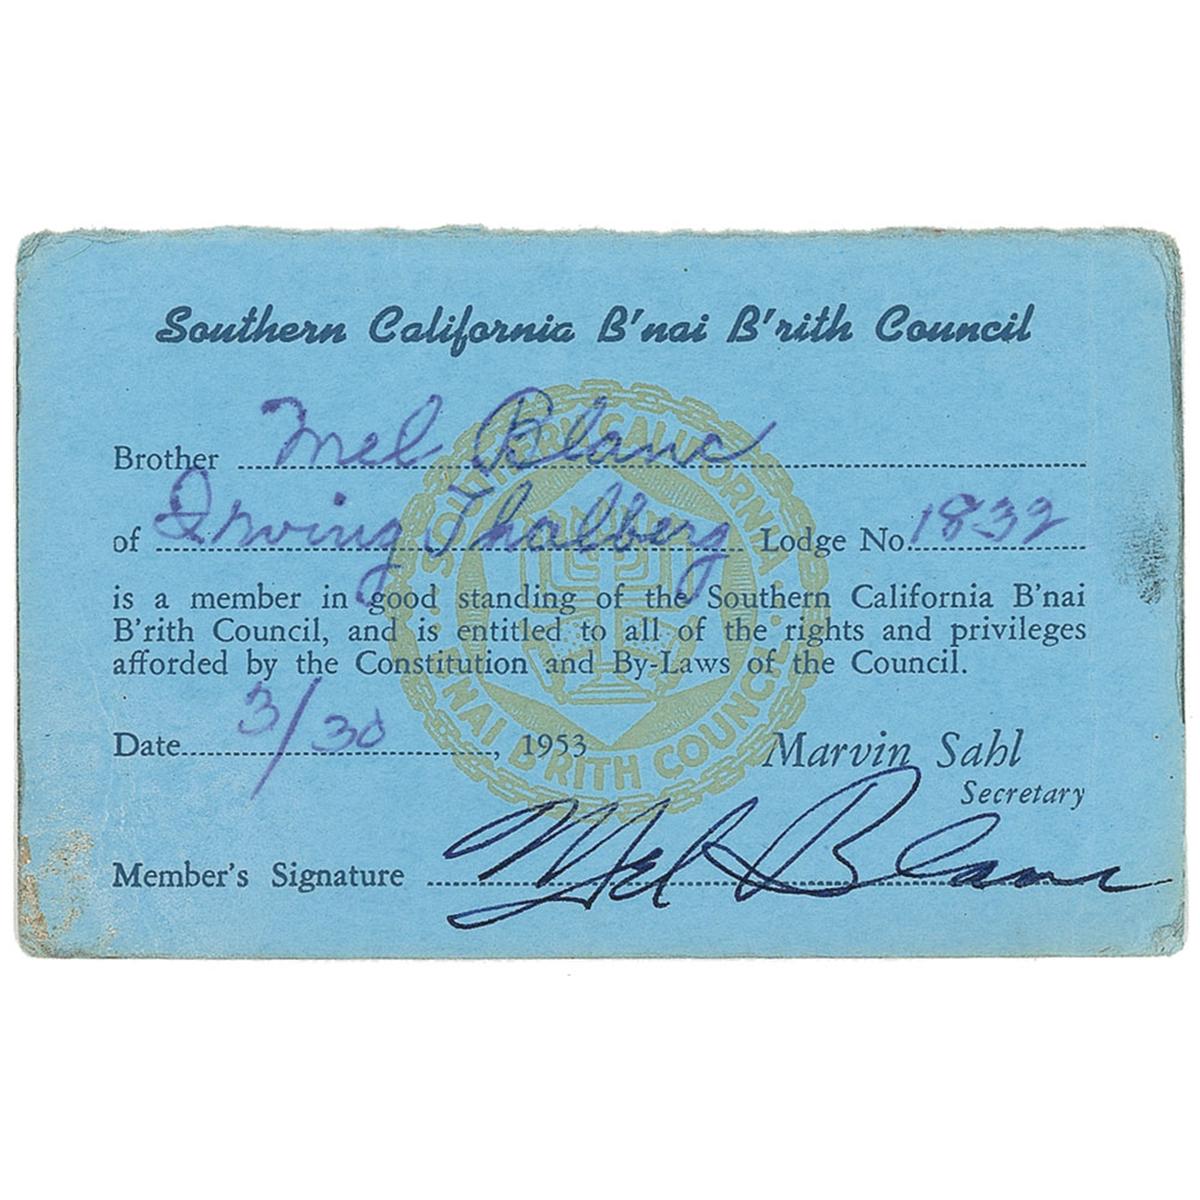 Southern California B'nai B'rith Council
Brother Mel Blanc
of Irving Thalberg Lodge No. 1832
is a member in good standing of the Southern California B'nai
B'rith Council, and is entitled to all of the rights and privileges
afforded by the Constitution and By-Laws of the Council.
Date 3/30, 1953
Marvin Sahl
Secretary
Member's Signature Mel Blanc
SOUTHERN CALIFORNIA
B'NAI B'RITH COUNCIL